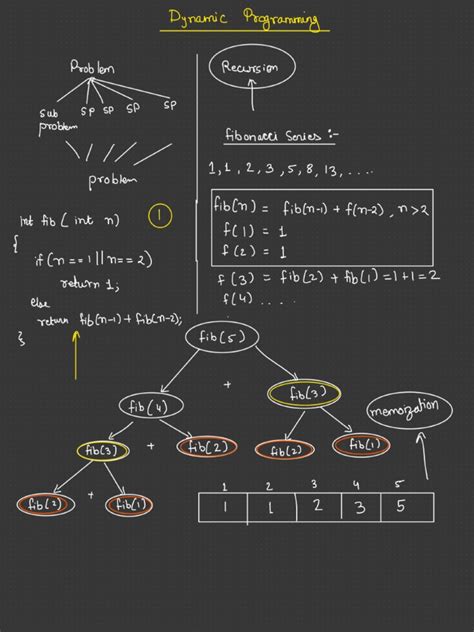 Dynamic Programming
Problem
sub problem
SP
SP
SP
SP
problem
Recursion
fibonacci Series :-
1, 1, 2, 3, 5, 8, 13, ....
fib(n) = fib(n-1) + f(n-2), n>2
f(1) = 1
f(2) = 1
f(3) = fib(2) + fib(1) = 1+1 = 2
f(4) ....
1
int fib( int n)
{
if (n == 1 || n == 2)
return 1;
else
return fib(n-1) + fib(n-2);
}
fib(5)
+
fib(4)
fib(3)
memoization
fib(3)
+
fib(2)
fib(2)
fib(1)
fib(2)
+
fib(1)
1 2 3 4 5
1 1 2 3 5